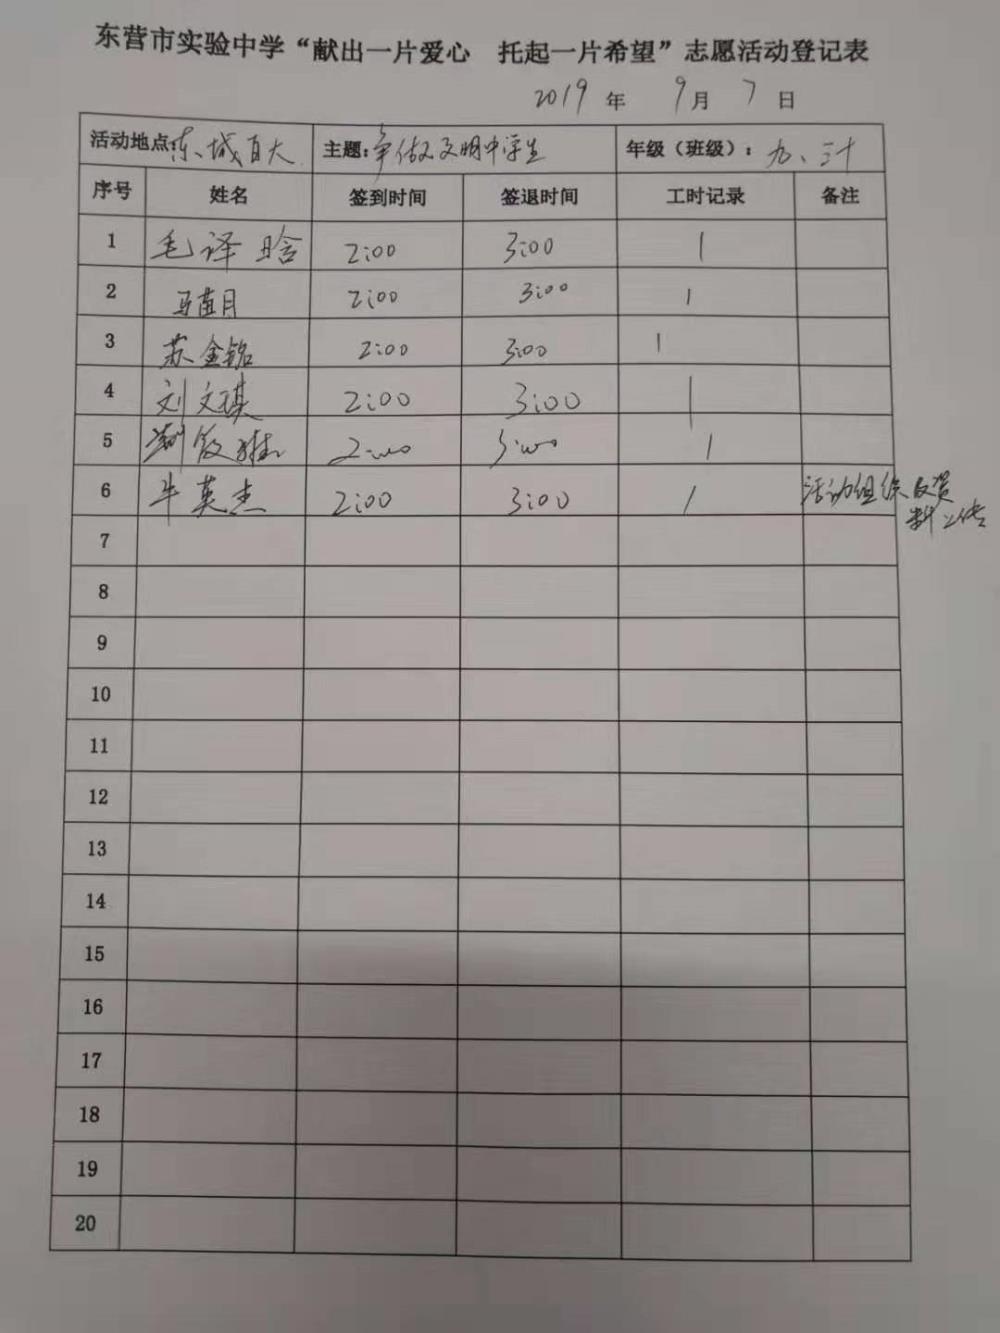 东营市实验中学“献出一片爱心 托起一片希望”志愿活动登记表
2019 年 9 月 7 日
活动地点:东城百大 主题:争做文明中学生 年级（班级）：九、三十
序号 姓名 签到时间 签退时间 工时记录 备注
1 毛译晗 2:00 3:00 1
2 马苗月 2:00 3:00 1
3 苏金铭 2:00 3:00 1
4 刘文琪 2:00 3:00 1
5 2:00 3:00 1
6 牛英杰 2:00 3:00 1 活动组织及资
料上传
7
8
9
10
11
12
13
14
15
16
17
18
19
20